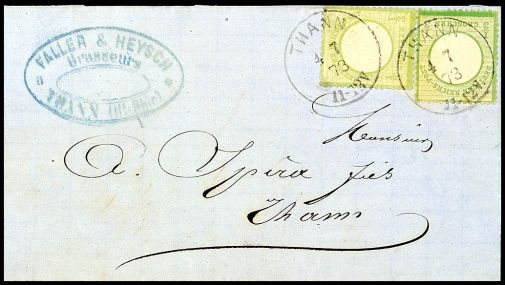 FALLER & HEYSCH
Brasseurs
THANN (Ht. Rhin)
THANN
4 7
73
11-12V.
THANN
4 7
73
11-12V.
Monsieur
A. Spéra fils
Thann